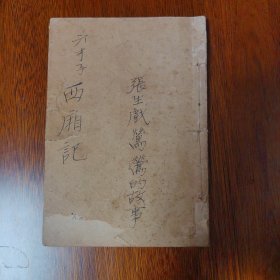 張生戲鶯鶯的故事
六才子西廂記